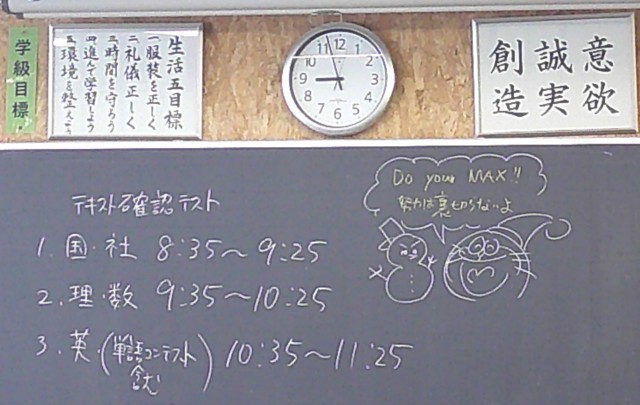 学級目標
生活五目標
一服装を正しく
二礼儀正しく
三時間を守ろう
四進んで学習しよう
五環境を整えよう
12
1
2
3
4
5
6
7
8
9
10
11
意欲
誠実
創造
テキスト確認テスト
1. 国・社 8:35〜9:25
2. 理・数 9:35〜10:25
3. 英・(単語コンテスト含む) 10:35〜11:25
Do your MAX!!
努力は裏切らないよ